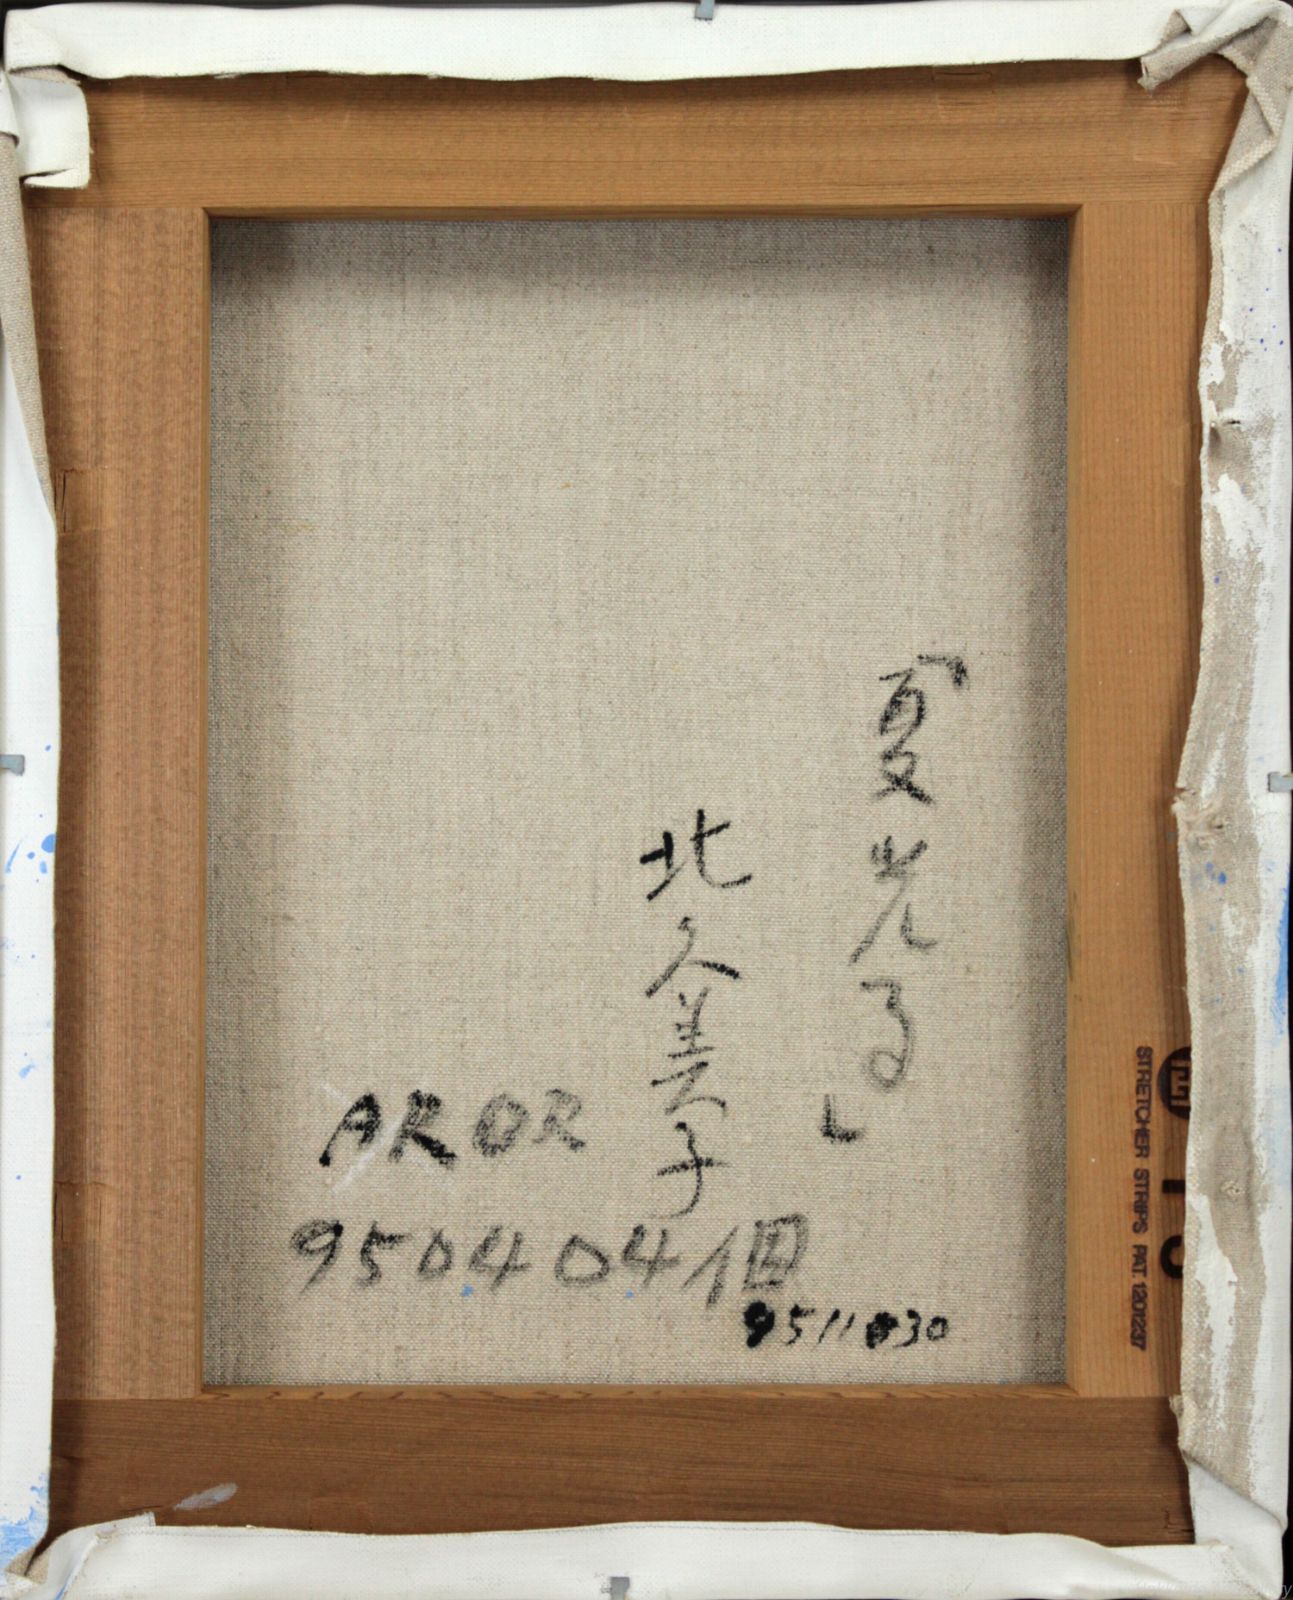 「夏光る」
北久美子
AROR
950404個
951130
STRETCHER STRIPS PAT. 1201237